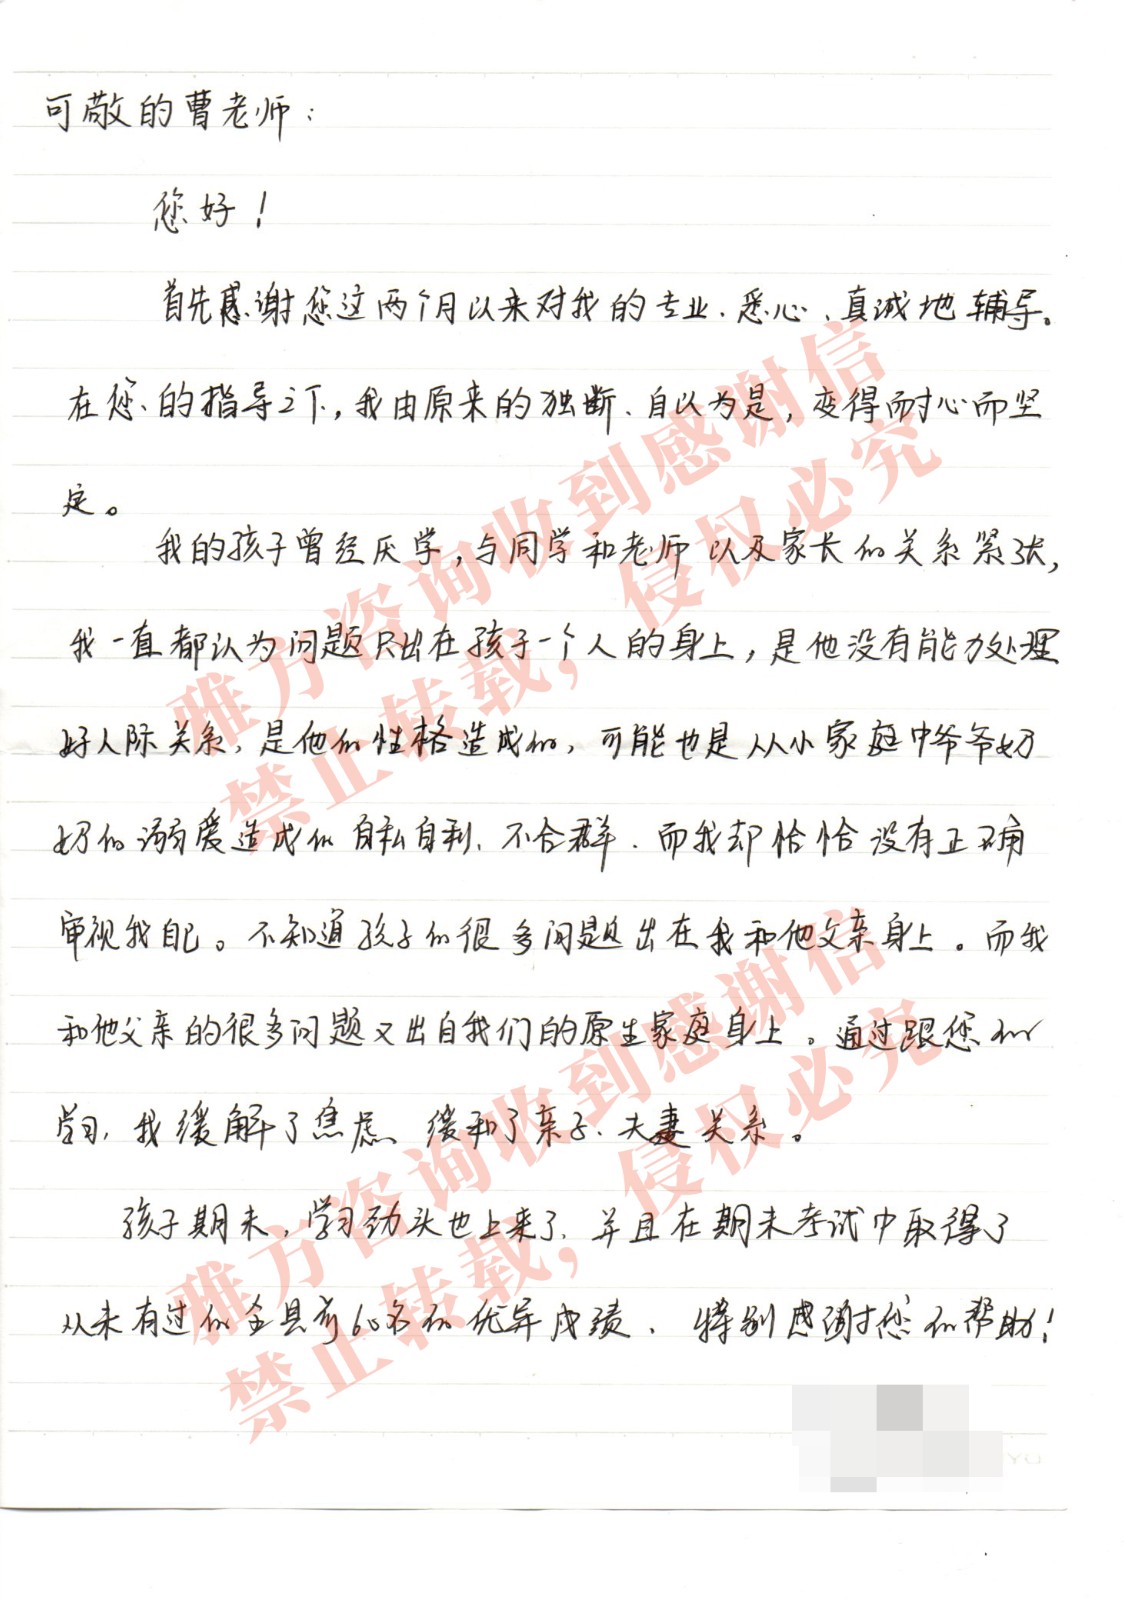 可敬的曹老师:
您好!
首先感谢您这两个月以来对我的专业、悉心、真诚地辅导。
在您的指导之下,我由原来的独断、自以为是,变得耐心而坚
定。
我的孩子曾经厌学,与同学和老师以及家长的关系紧张,
我一直都认为问题只出在孩子一个人的身上,是他没有能力处理
好人际关系,是他的性格造成的,可能也是从小家庭中爷爷奶
奶的溺爱造成的自私自利、不合群.而我却恰恰没有正确
审视我自己。不知道孩子的很多问题出在我和他父亲身上。而我
和他父亲的很多问题又出自我们的原生家庭身上。通过跟您的
学习,我缓解了焦虑、缓和了亲子、夫妻关系。
孩子期末,学习劲头也上来了,并且在期末考试中取得了
从未有过的全县前60名的优异成绩、特别感谢您的帮助!
雅方咨询收到感谢信
禁止转载,侵权必究
雅方咨询收到感谢信
禁止转载,侵权必究
YU